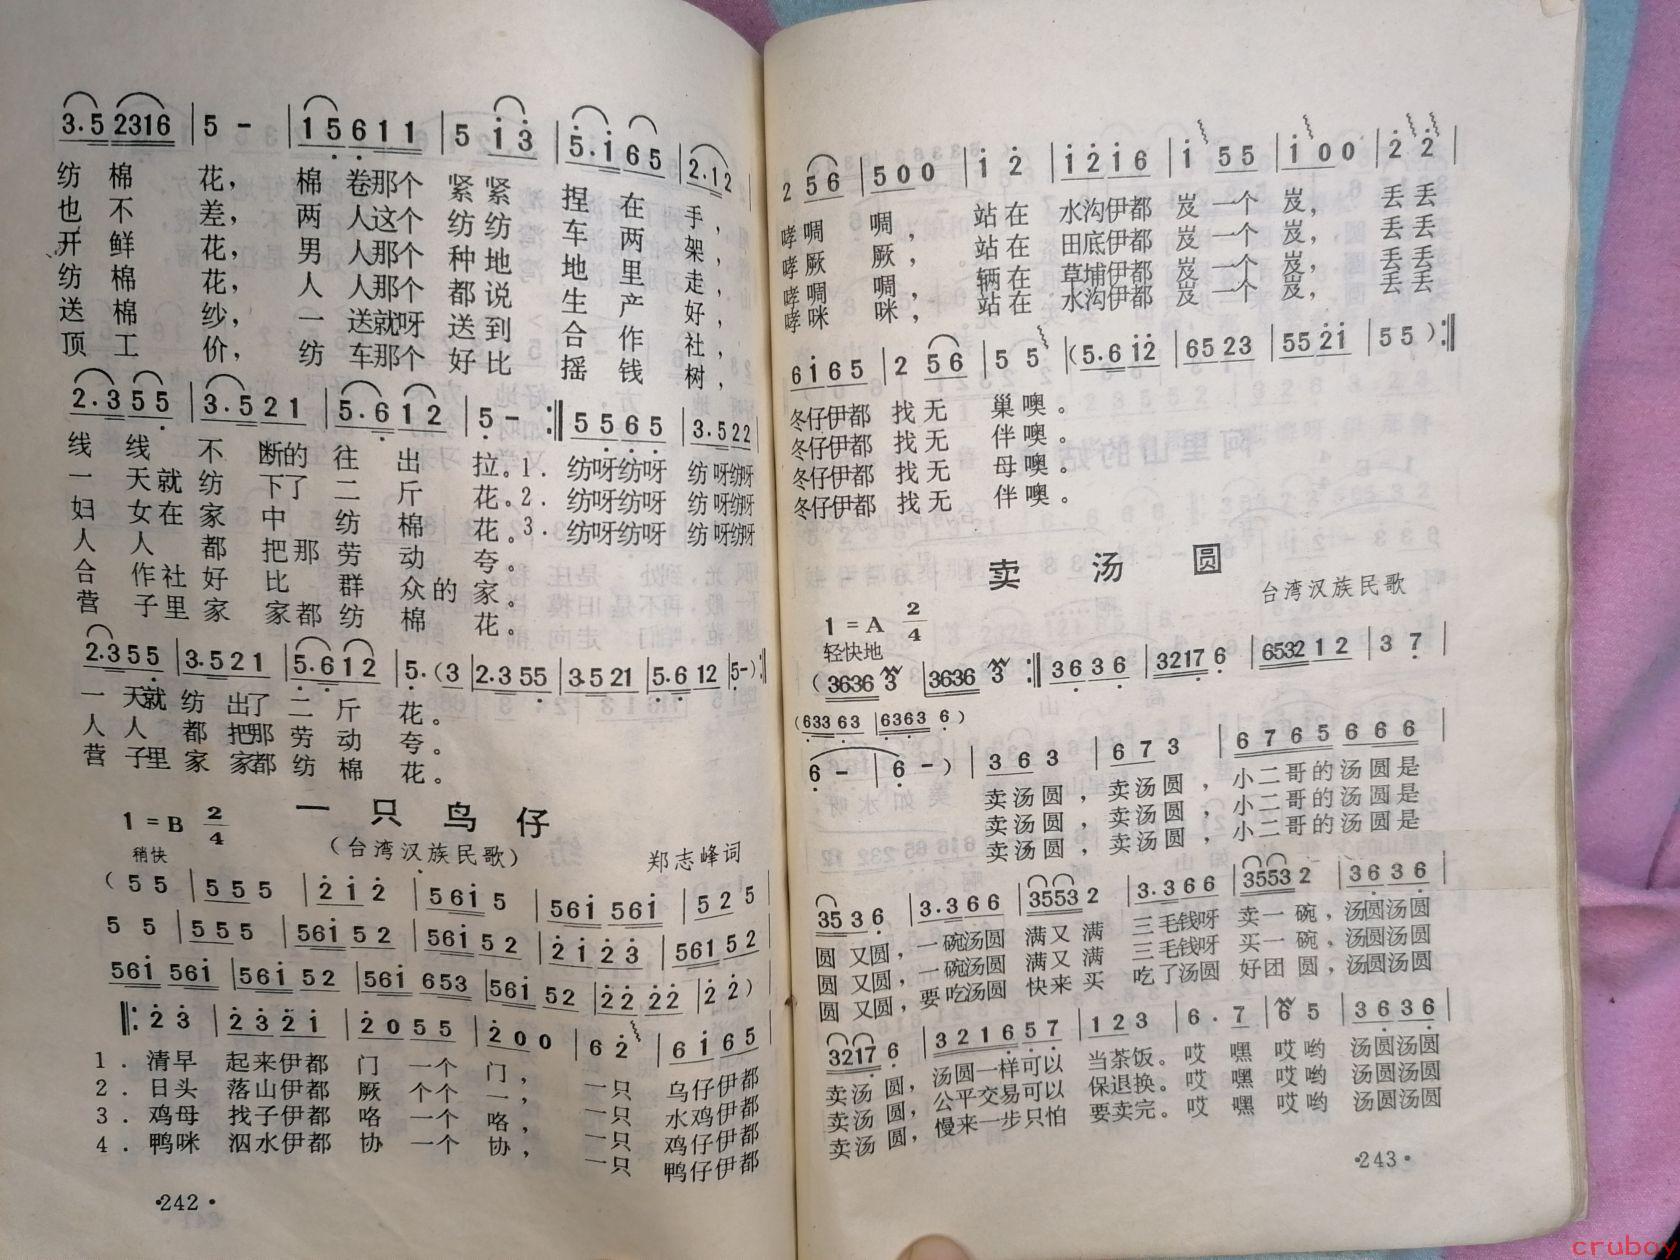 3.5 2316 | 5 - | 15611 | 5 i3 | 5.i65 | 2.12 |
纺 棉 花， 棉 卷那个 紧 紧 捏 在 手，
也 不 差， 两 人这个 纺 纺 车 两 架，
开 鲜 花， 男 人那个 种 地 地 里 走，
纺 棉 花， 人 人那个 都 说 生 产 好，
送 棉 纱， 一 送就呀 送 到 合 作 社，
顶 工 价， 纺 车那个 好 比 摇 钱 树，
2.355 | 3.521 | 5.612 | 5 - :‖ 5565 | 3.522 |
线 线 不 断的 往 出 拉。1. 纺呀纺呀 纺呀纺呀
一 天就 纺 下了 二 斤 花。2. 纺呀纺呀 纺呀纺呀
妇 女在 家 中 纺 棉 花。3. 纺呀纺呀 纺呀纺呀
人 人 都 把那 劳 动 夸。
合 作社 好 比 群 众的 家。
营 子里 家 家都 纺 棉 花。
2.355 | 3.521 | 5.612 | 5.(3 | 2.355 | 3.521 | 5.612 | 5-):‖
一 天就 纺 出了 二 斤 花。
人 人 都 把那 劳 动 夸。
营 子里 家 家都 纺 棉 花。
一只鸟仔
1=B 2/4
（台湾汉族民歌） 郑志峰词
稍快
(55 | 555 | 2i2 | 56i5 | 56i 56i | 525
55 | 555 | 56i52 | 56i52 | 2i23 | 56i52
56i 56i | 56i52 | 56i 653 | 56i52 | 22 22 | 22)
‖:23 | 232i | 2055 | 200 | 62 | 6i65
1．清早 起来伊都 门 一个 门， 一只 鸟仔伊都
2．日头 落山伊都 厥 个个 一， 一只 水鸡伊都
3．鸡母 找子伊都 咯 一个 咯， 一只 鸡仔伊都
4．鸭咪 泅水伊都 协 一个 协， 一只 鸭仔伊都
·242·
2 56 | 500 | i2 | i2i6 | i 55 | i00 | 22 |
哮啁 啁， 站在 水沟伊都 岌 一个 岌， 丢丢
哮厥 厥， 站在 田底伊都 岌 一个 岌， 丢丢
哮啁 啁， 辆在 草埔伊都 岌 一个 岌， 丢丢
哮咪 咪， 站在 水沟伊都 岌 一个 岌， 丢丢
6i65 | 2 56 | 55 | (5.6i2 | 6523 | 552i | 55):‖
冬仔伊都 找无 巢噢。
冬仔伊都 找无 伴噢。
冬仔伊都 找无 母噢。
冬仔伊都 找无 伴噢。
卖汤圆
台湾汉族民歌
1=A 2/4
轻快地
(3636 3 | 3636 3 :‖ 3636 | 3217 6 | 6532 12 | 3 7 |
(63363 | 6363 6)
6 - | 6 -) | 363 | 673 | 6765 666
卖汤圆，卖汤圆，小二哥的汤圆是
卖汤圆，卖汤圆，小二哥的汤圆是
卖汤圆，卖汤圆，小二哥的汤圆是
35 36 | 3.366 | 3553 2 | 3.366 | 3553 2 | 3636 |
圆 又圆，一碗汤圆 满又满 三毛钱呀 卖一碗，汤圆汤圆
圆 又圆，一碗汤圆 满又满 三毛钱呀 买一碗，汤圆汤圆
圆 又圆，要吃汤圆 快来买 吃了汤圆 好团圆，汤圆汤圆
3217 6 | 321657 | 123 | 6.7 | 65 | 3636 |
卖汤圆，汤圆一样可以 当茶饭。哎 嘿 哎哟 汤圆汤圆
卖汤圆，公平交易可以 保退换。哎 嘿 哎哟 汤圆汤圆
卖汤圆，慢来一步只怕 要卖完。哎 嘿 哎哟 汤圆汤圆
·243·
cruboy